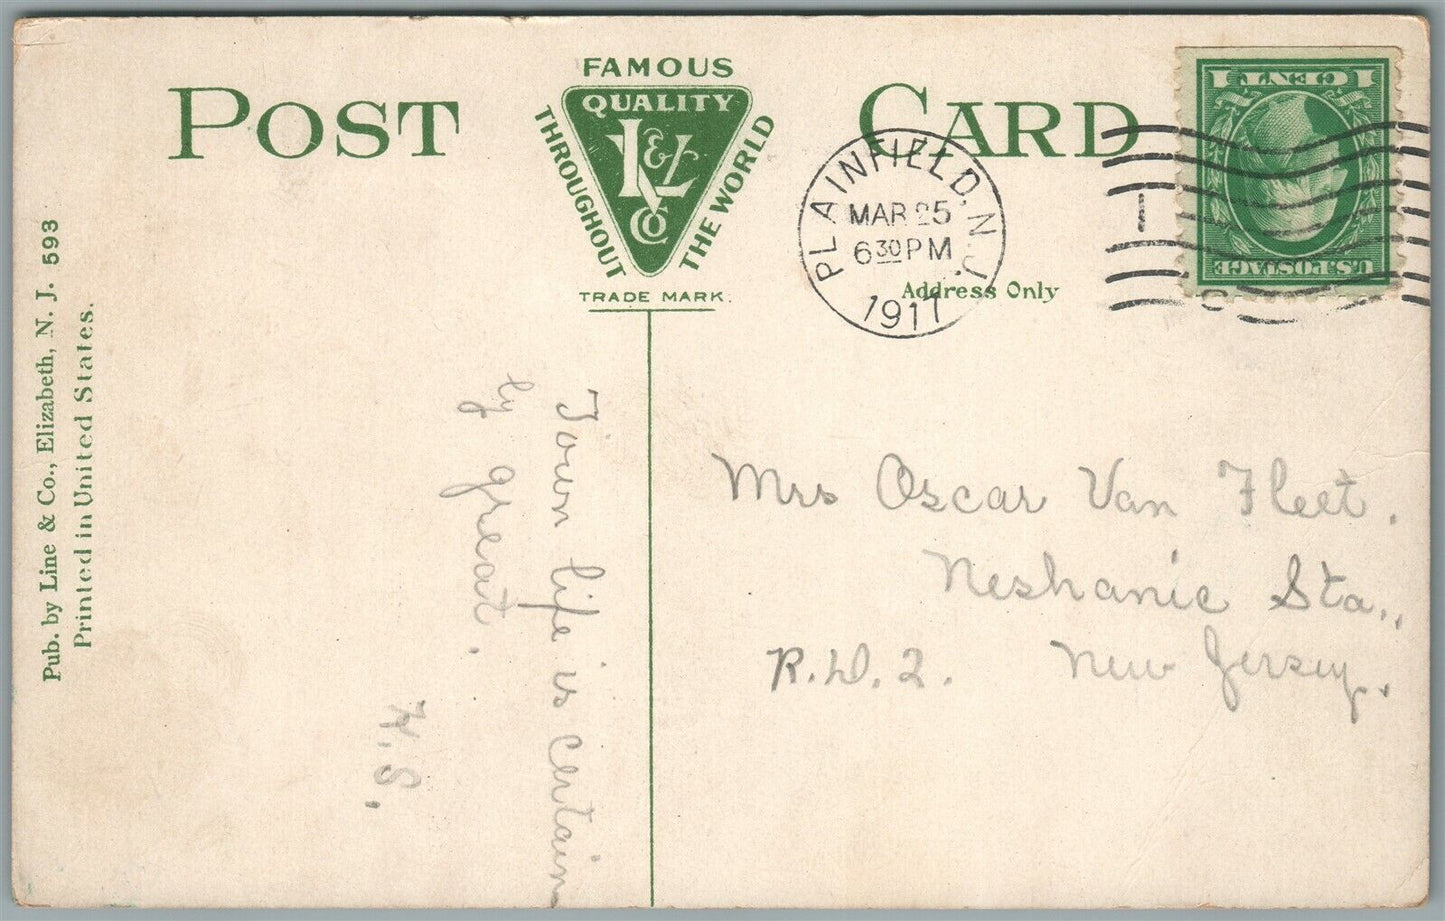 POST CARD
FAMOUS
QUALITY
THROUGHOUT
THE WORLD
L & Co
TRADE MARK.
PLAINFIELD, N.J.
MAR 25
6 30 PM
1911
1 CENT 1
U.S. POSTAGE
Address Only
Pub. by Line & Co., Elizabeth, N. J. 593
Printed in United States.
Town life is certain
ly great.
H.S.
Mrs Oscar Van Fleet.
Neshanic Sta.,
R.D. 2. New Jersey.